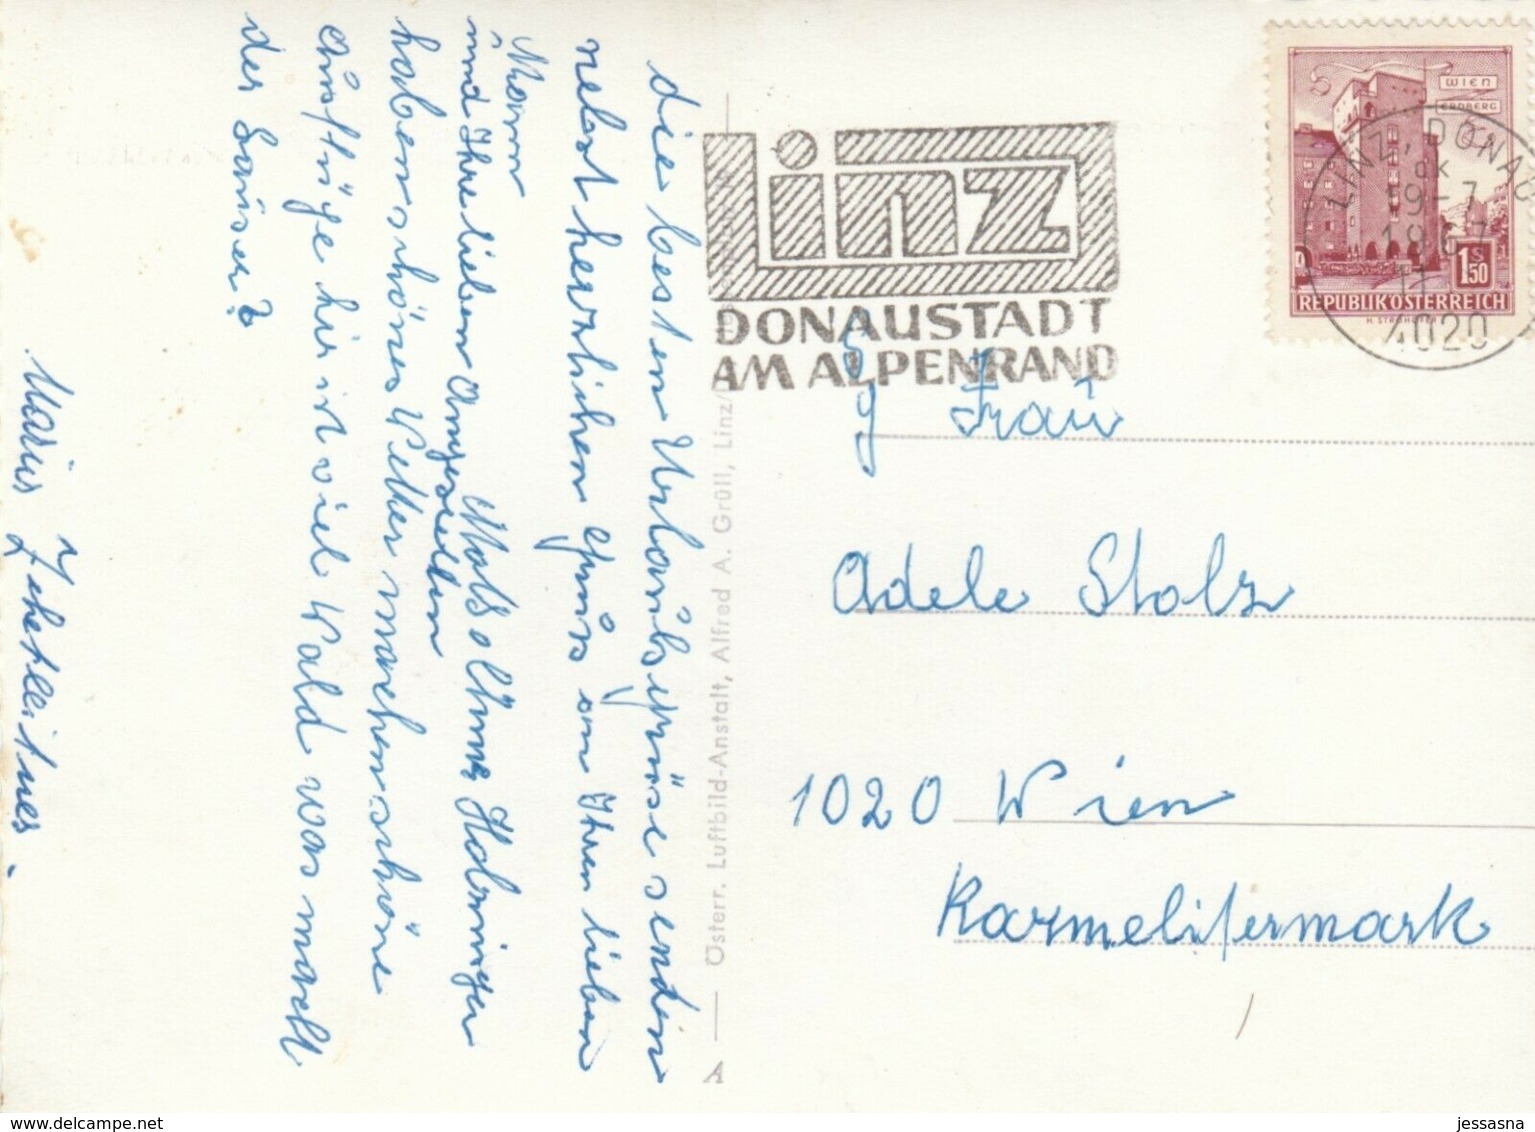 die besten Urlaubsgrüsse senden
nebst herzlichen gruss an Ihren lieben
Mann
und Ihre lieben Angestellten
haben schönes Wetter machen schöne
Ausflüge hir ist viel Wald was macht
der Sauser?
linz
DONAUSTADT
AM ALPENRAND
WIEN
ERDBERG
1S50
REPUBLIK ÖSTERREICH
LINZ, DONAU
4020
Österr. Luftbild-Anstalt, Alfred A. Grüll, Linz/
A
Frau
Adele Stolz
1020 Wien
Karmelitermark
jessasna